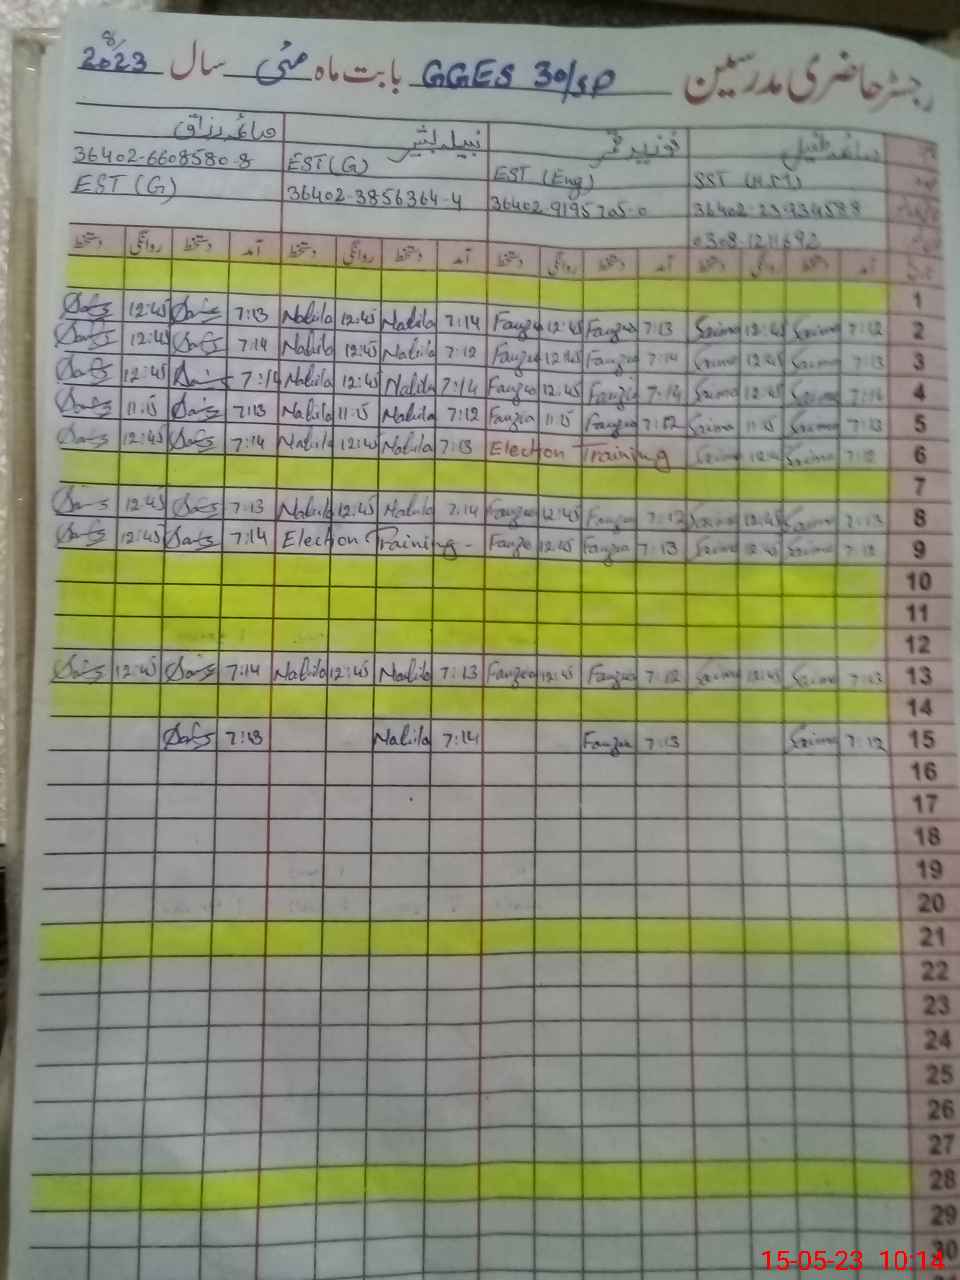 رجسٹر حاضری مدرسین GGES 30/SP بابت ماہ مئی سال 2023
صائمہ طفیل فوزیہ قمر نبیلہ بشیر صائمہ رزاق
SST (H.M) EST (Eng) EST (G) 36402-6608580-8
36402-9195705-0 36402-3856364-4 EST (G)
0308-1211692
آمد دستخط روانگی دستخط آمد دستخط روانگی دستخط آمد دستخط روانگی دستخط آمد دستخط روانگی دستخط
1
2 7:12 Saima 12:45 Saima 7:13 Fauzia 12:45 Fauzia 7:14 Nabila 12:45 Nabila 7:13 12:45
3 7:13 Saima 12:45 Saima 7:14 Fauzia 12:45 Fauzia 7:12 Nabila 12:45 Nabila 7:14 12:45
4 7:14 Saima 12:45 Saima 7:14 Fauzia 12:45 Fauzia 7:14 Nabila 12:45 Nabila 7:14 12:45
5 7:13 Saima 11:15 Saima 7:12 Fauzia 11:15 Fauzia 7:12 Nabila 11:15 Nabila 7:13 11:15
6 7:12 Saima 12:45 Saima Election Training 7:13 Nabila 12:45 Nabila 7:14 12:45
7
8 7:13 Saima 12:45 Saima 7:12 Fauzia 12:45 Fauzia 7:14 Nabila 12:45 Nabila 7:13 12:45
9 7:12 Saima 12:45 Saima 7:13 Fauzia 12:45 Fauzia Election Training - 7:14 12:45
10
11
12
13 7:13 Saima 12:45 Saima 7:12 Fauzia 12:45 Fauzia 7:13 Nabila 12:45 Nabila 7:14 12:45
14
15 7:12 Saima 7:13 Fauzia 7:14 Nabila 7:13
16
17
18
19
20
21
22
23
24
25
26
27
28
29
30
15-05-23 10:14